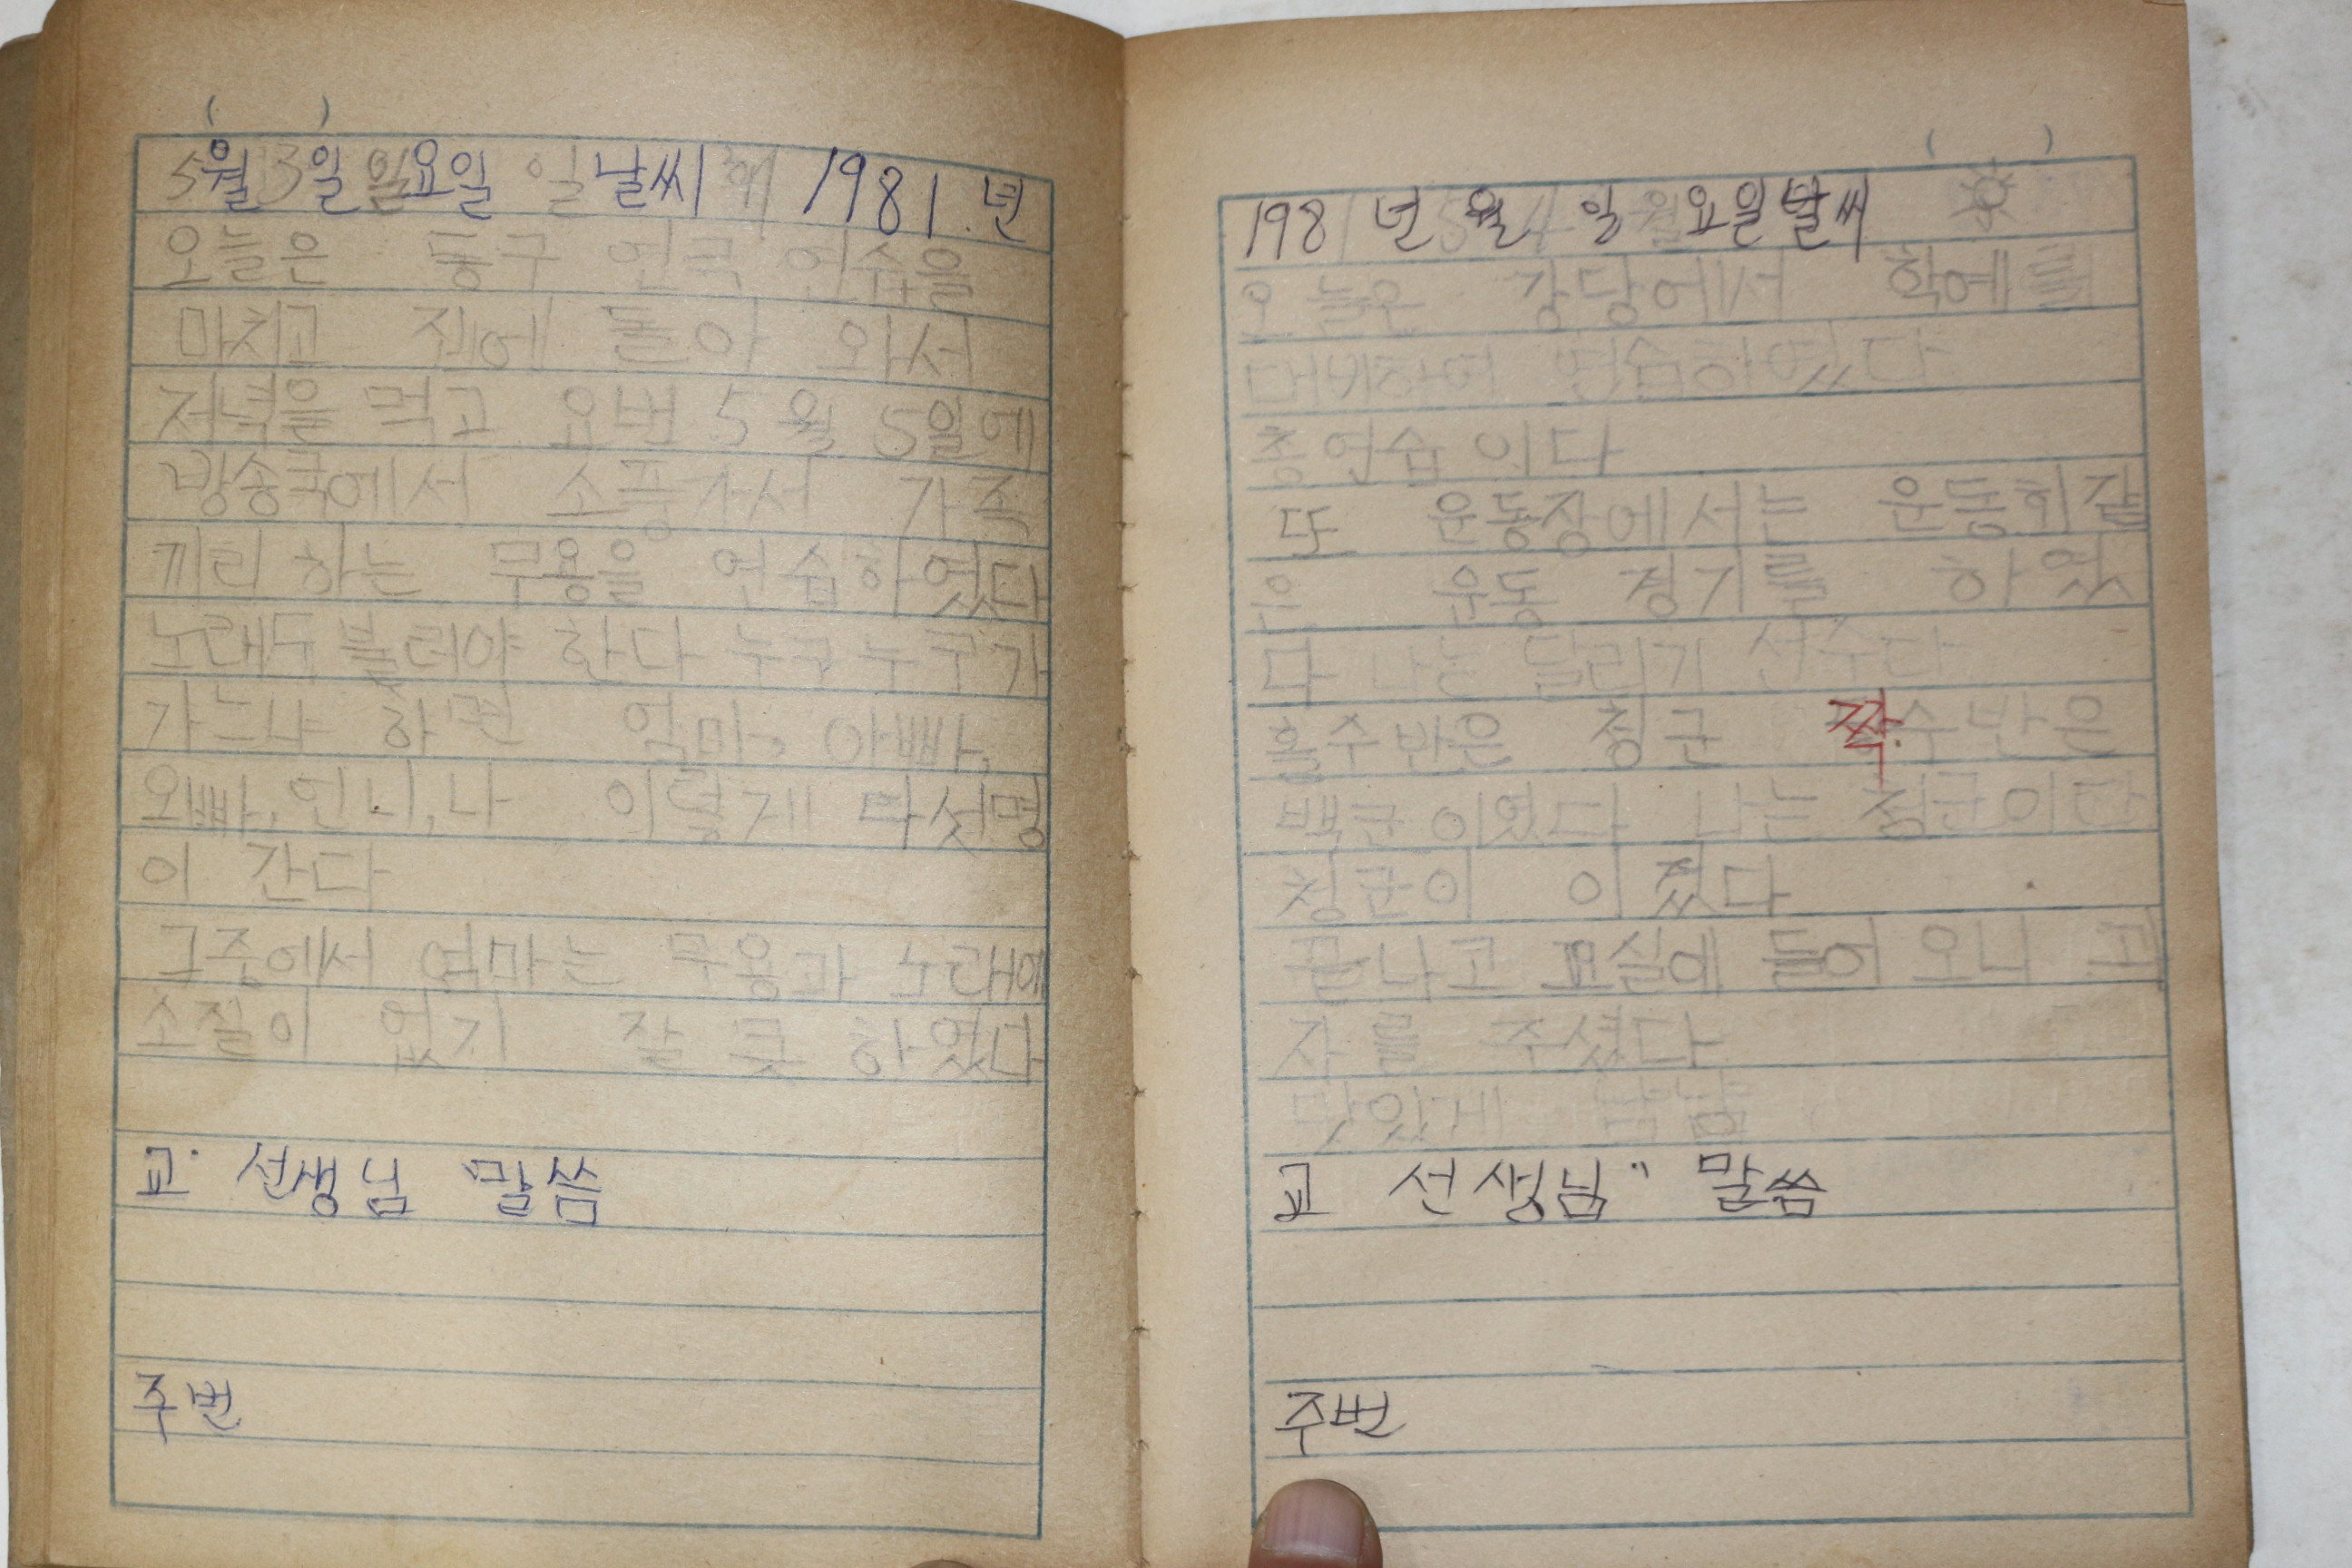 5월 3일 일요일 날씨 해 1981.년
오늘은 동구 연극 연습을
마치고 집에 돌아 와서
저녁을 먹고 요번 5월 5일에
방송국에서 소풍가서 가족
끼리 하는 무용을 연습하였다
노래도 불러야 한다 누구누구가
가느냐 하면 엄마, 아빠,
오빠, 언니, 나 이렇게 다섯명
이 간다
그중에서 엄마는 무용과 노래에
소질이 없기 잘 못 하였다
교 선생님 말씀
주번
1981년 5월 4일 월요일 날씨
오늘은 강당에서 학예를
대비하여 연습하였다
총연습이다
또 운동장에서는 운동회 같
은 운동 경기를 하였
다 나는 달리기 선수다
홀수반은 청군 짝수반은
백군이였다 나는 청군이다
청군이 이겼다
끝나고 교실에 들어 오니 과
자를 주셨다
맛있게 냠냠
교 선생님" 말씀
주번